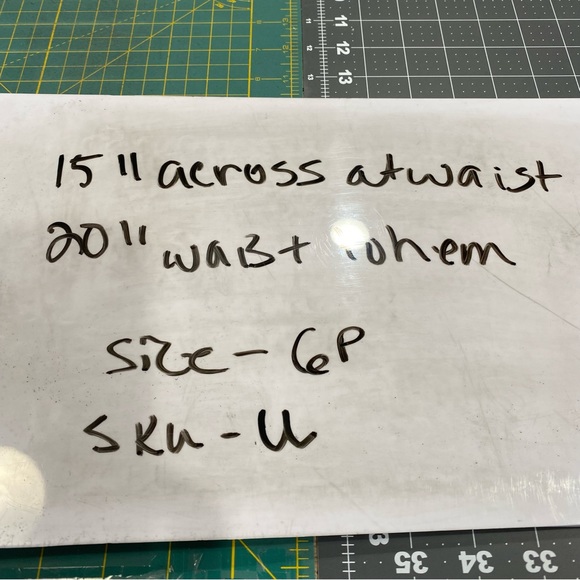 11
12
13
15" across at waist
20" waist to hem
Size - 6P
SKU - U
35
34
33